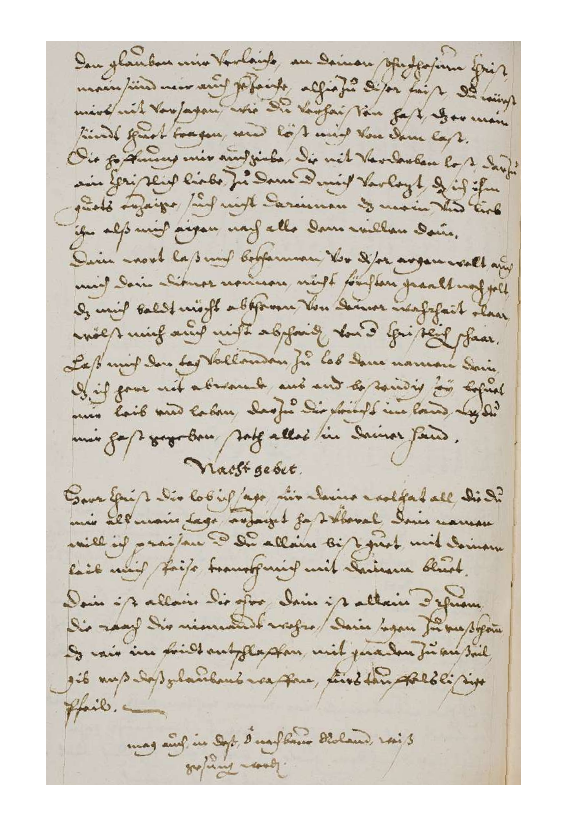 den glauben mir verleihe, an deinen sohn Jhesum Christ
mein sünd mir auch verzeihe, alhie zu diser frist, du würst
mirs nit versagen, wie du verheissen hast, dz er mein
sünd thuet tragen, und löst mich von dem last.
Die hoffnung mir auch gibe, die nit verderben lest, darzu
ein christlich liebe, zu dem d mich verlezt, dz ich ihm
guets erzaige, such nicht darinnen dz mein, und lieb
ihn alß mich aigen nach alle dem willen dein.
Dein wort laß mich bekhennen vor diser argen welt auch
mich dein diener nennen, nicht förchten gwalt noch gelt,
dz mich baldt möcht abkheren, von deiner wahrheit claar,
wölst mich auch nicht abscheidn von d christlichn schaar.
Laß mich den tag vollenden zu lob dem namen dein,
dz ich herr nit abwende, ans end bestendig sey, behuet
mir leib und leben, darzu die frücht im land, wz du
mir hast gegeben, steth alles in deiner hand.
Nachtgebet.
Herr Christ die lob ich sage, für deine wolthat all, die du
mir alß mein tage, erzaigt hast überal, dein namen
will ich preisen d du allein bist guet, mit deinem
leib mich speise trenckh mich mit deinem bluet.
Dein ist allein die ehre, dein ist allein d rhuem,
die rach dir niemandt wehre, dein segen zu unß khum
dz wir im fridt entschlaffen, mit gnaden zu unß eil,
gib unß deß glaubens waffen, fürs teuffels listige
Pfeil.
mag auch, in deß, Roland, weiß
gesung werdn